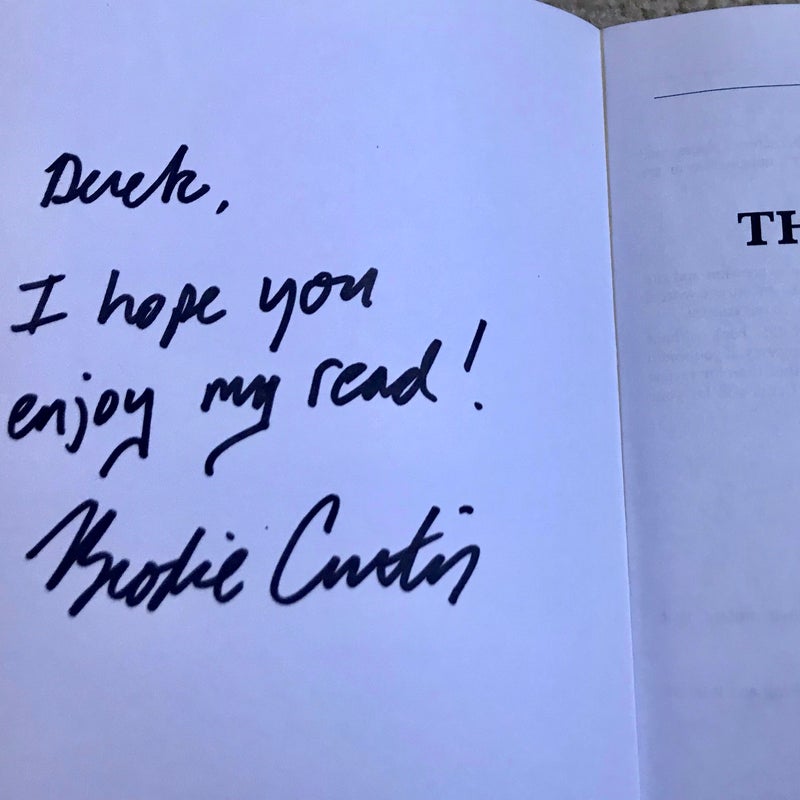 Derek,
I hope you
enjoy my read!
Brodie Curtis
TH